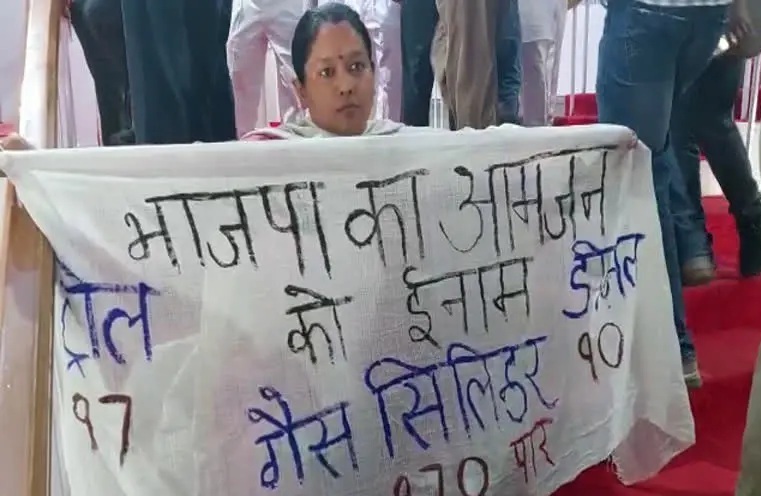 भाजपा का आमजन
ट्रोल को ईनाम डीजल
97 गैस सिलिडर 90
970 पार